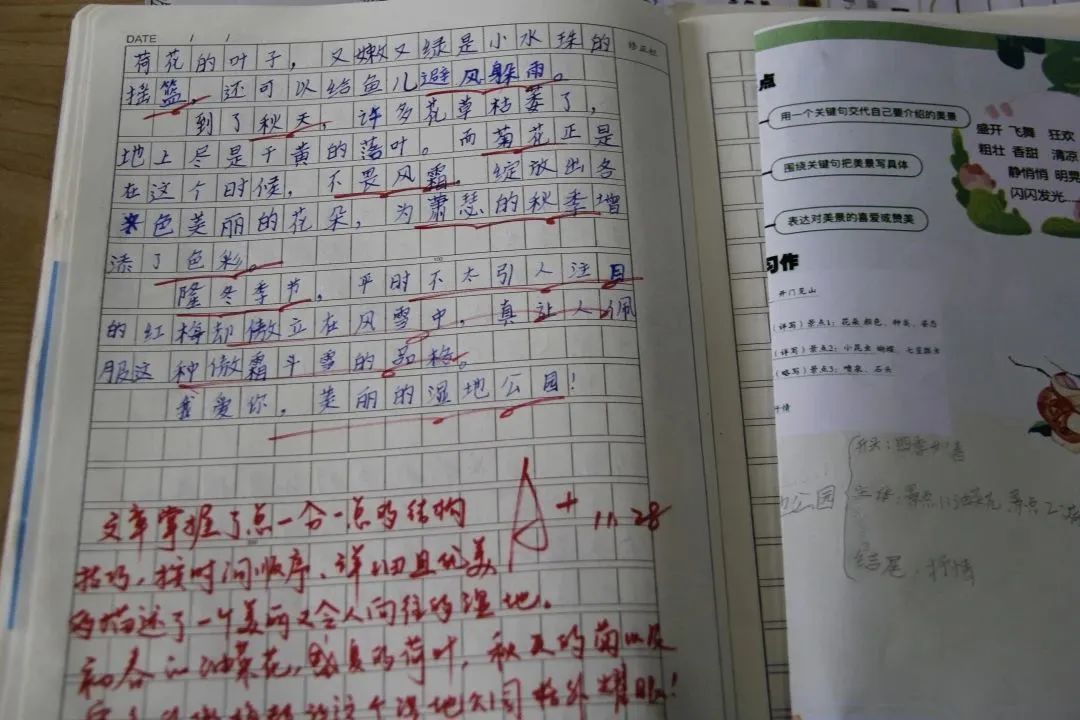 DATE / /
修正栏
荷花的叶子，又嫩又绿是小水珠的
摇篮，还可以给鱼儿避风躲雨。
到了秋天，许多花草枯萎了，
地上尽是干黄的落叶。而菊花正是
在这个时候，不畏风霜，绽放出各
色美丽的花朵，为萧瑟的秋季增
添了色彩。
隆冬季节，平时不太引人注目
的红梅却傲立在风雪中，真让人佩
服这种傲霜斗雪的梅。
我爱你，美丽的湿地公园！
A+ 11.28
文章掌握了总一分一总的结构
技巧，按时间顺序、详细且优美
的描述了一个美丽又令人向往的湿地。
初春的油菜花，盛夏的荷叶，秋天的菊以及
这个湿地公园格外耀眼！
点
用一个关键句交代自己要介绍的美景
围绕关键句把美景写具体
表达对美景的喜爱或赞美
盛开 飞舞 狂欢
粗壮 香甜 清凉
静悄悄 明晃
闪闪发光
习作
开门见山
（详写）景点1：花朵 颜色、种类、姿态
（详写）景点2：小昆虫 蝴蝶、七星瓢虫
（略写）景点3：喷泉、石头
抒情
公园
开头：四季如春
主体：景点1：油菜花 景点2：
结尾：抒情